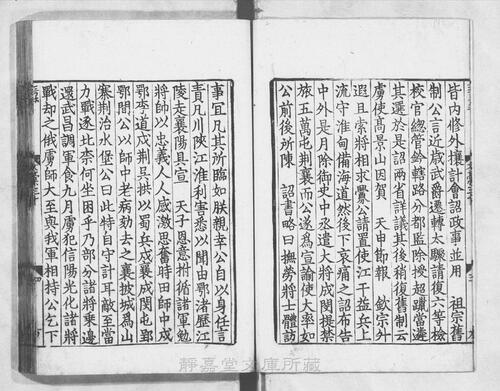 皆内修外攘計會詔政事並用　祖宗舊
制公言近歳武爵遷轉太驟請復六等檢
校官總管鈐轄路分都監除授超躐當遴
其選於是詔兩省詳議其後稍復舊制云
虜使高景山因賀　天申節報　欽宗外
遐且索將相求釁公請置使江干益兵上
流守淮甸備海道然後下哀痛之詔布告
中外是月除御史中丞遣大將成閔提禁
旅五萬屯荆襄而公遂爲宣諭使大率如
公前後所陳　詔書略曰撫勞將士體訪
事宜凡其所臨如朕親幸公自以身任言
責凡川陜江淮利害悉以聞由鄂渚歷江
陵走襄陽具宣　天子恩意拊循諸軍勉
將帥以忠義人人感激思奮時田師中戍
鄂李道戍荆吳拱以蜀兵戍襄成閔屯郢
鄂閒公以師中老病劾去之襄披城爲山
寨荆治水堡公曰此特自守計耳敵至當
力戰逐北柰何坐困乎乃部分諸將乘邊
還武昌調軍食九月虜犯信陽光化諸將
戰却之俄虜師大至與我軍相持公乞下
靜嘉堂文庫所藏